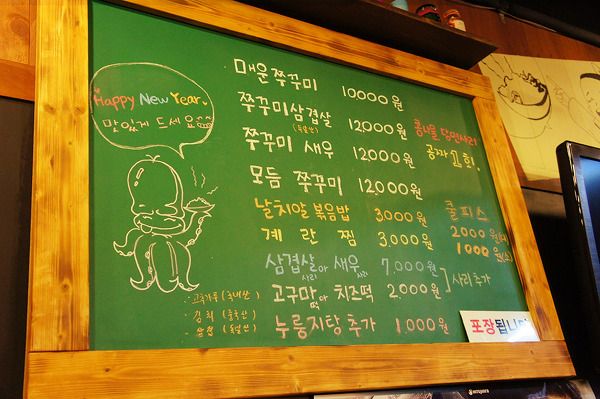 Happy New Year
맛있게 드세요
매운쭈꾸미 10000원
쭈꾸미삼겹살 12,000원
(독일산)
쭈꾸미 새우 12,000원
모듬 쭈꾸미 12,000원
날치알 볶음밥 3,000원
계란찜 3,000원
삼겹살사리 or 새우사리 7,000원
고구마떡 or 치즈떡 2,000원
]사리추가
누룽지탕 추가 1,000원
콩나물 당면사리
공짜 1회.
쿨피스
2000원
1000원(소)
고춧가루 (국내산)
김치 (중국산)
삼겹 (독일산)
포장됩니다